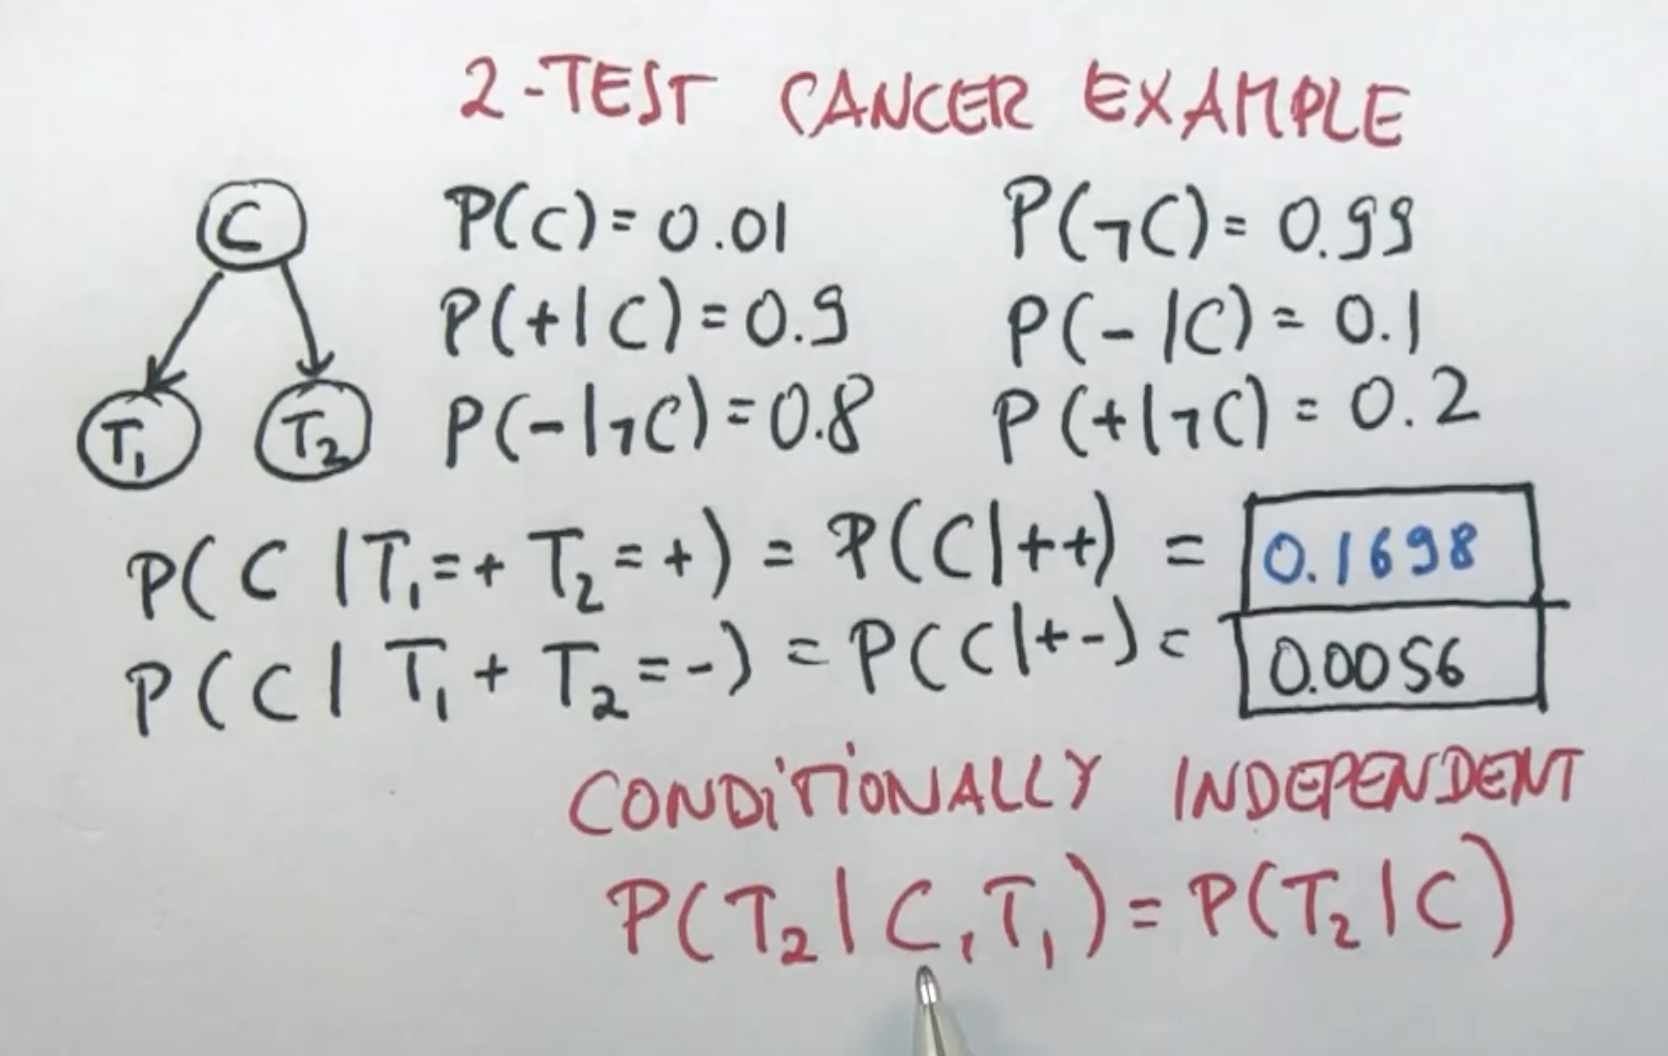 2-TEST CANCER EXAMPLE
C P(C)=0.01 P(¬C)=0.99
P(+|C)=0.9 P(-|C)=0.1
T₁ T₂ P(-|¬C)=0.8 P(+|¬C)=0.2
P(C|T₁=+ T₂=+) = P(C|++) = 0.1698
P(C|T₁+ T₂=-) = P(C|+-) = 0.0056
CONDiTiONALLY INDEPENDENT
P(T₂|C,T₁)=P(T₂|C)